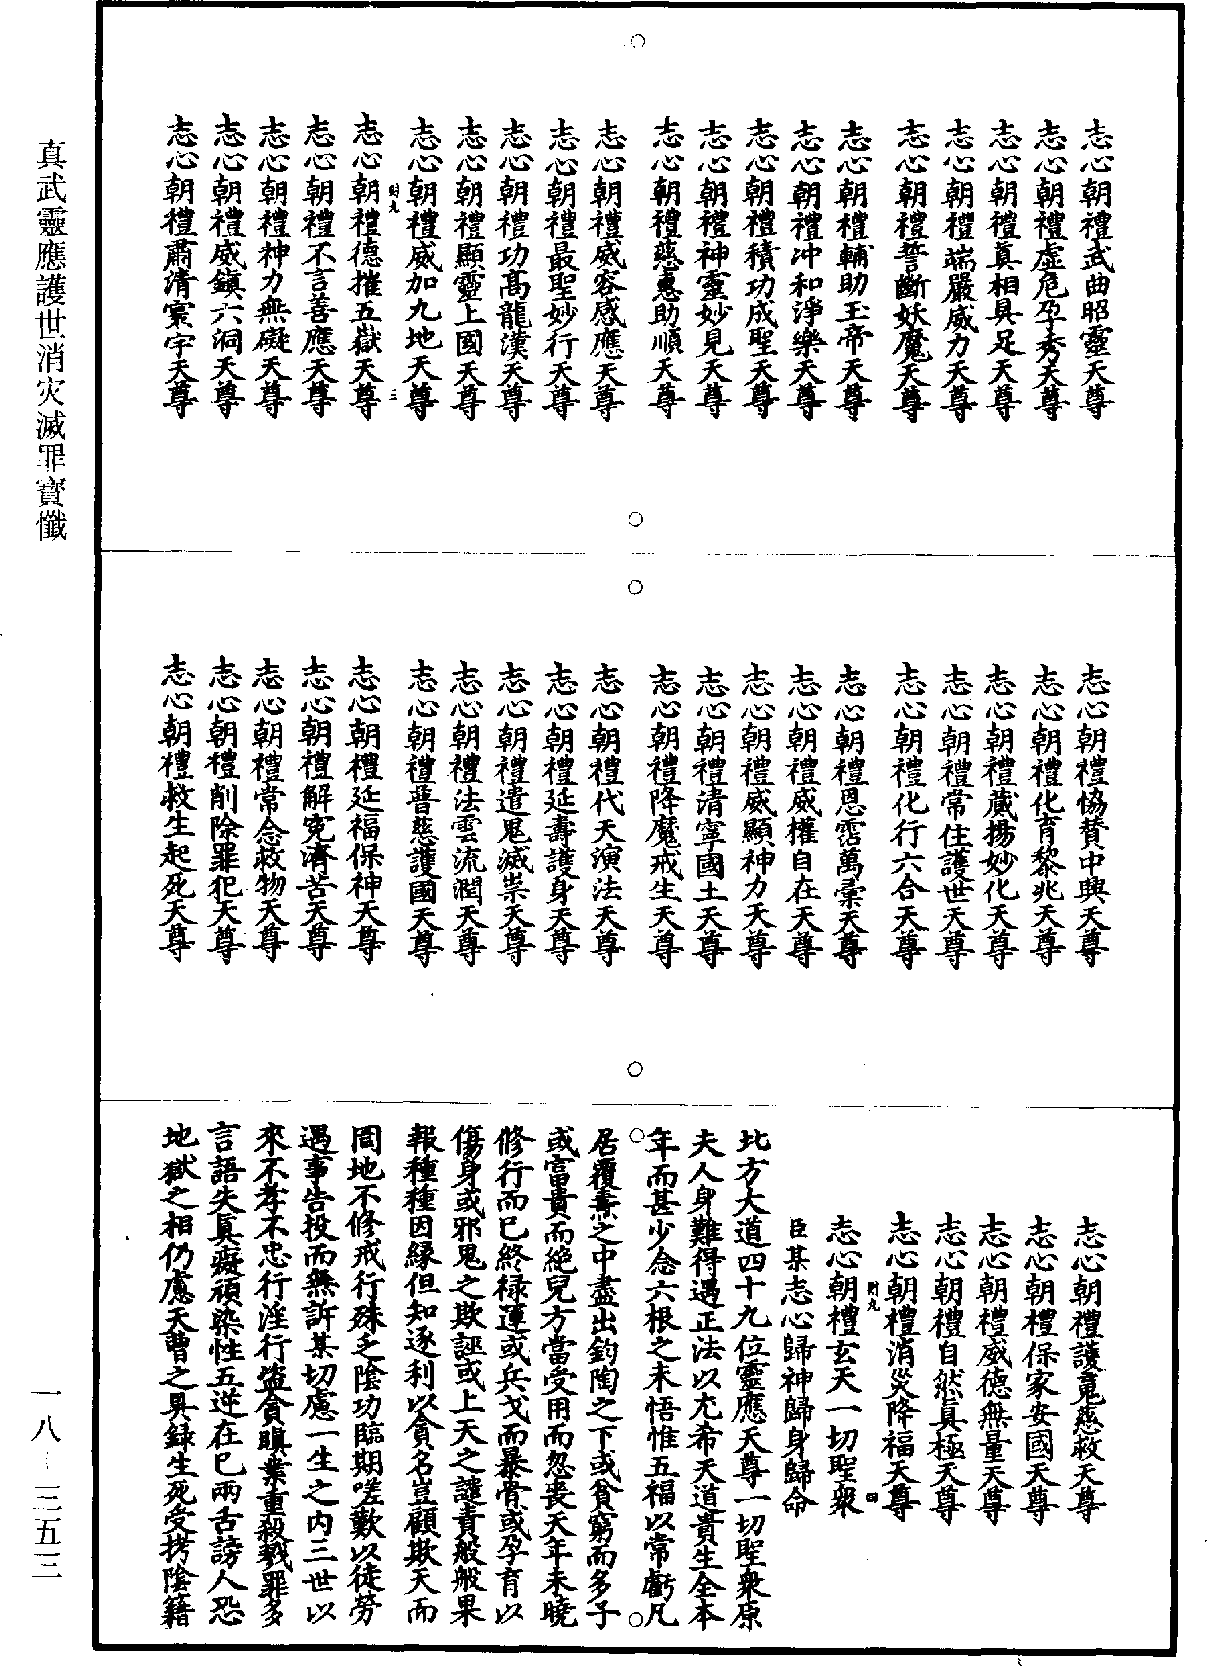 志心朝禮武曲昭靈天尊
志心朝禮虛危孕秀天尊
志心朝禮真相具足天尊
志心朝禮端嚴威力天尊
志心朝禮誓斷妖魔天尊
志心朝禮輔助玉帝天尊
志心朝禮冲和淨樂天尊
志心朝禮積功成聖天尊
志心朝禮神靈妙見天尊
志心朝禮慈惠助順天尊
志心朝禮威容感應天尊
志心朝禮最聖妙行天尊
志心朝禮功高龍漢天尊
志心朝禮顯靈上國天尊
志心朝禮威加九地天尊
三
志心朝禮德摧五嶽天尊
志心朝禮不言善應天尊
志心朝禮神力無礙天尊
志心朝禮威鎮六洞天尊
志心朝禮肅清寰宇天尊
志心朝禮協贊中興天尊
志心朝禮化育黎兆天尊
志心朝禮蕆揚妙化天尊
志心朝禮常住護世天尊
志心朝禮化行六合天尊
志心朝禮恩霑萬彙天尊
志心朝禮威權自在天尊
志心朝禮威顯神力天尊
志心朝禮清寧國土天尊
志心朝禮降魔戒生天尊
志心朝禮代天演法天尊
志心朝禮延壽護身天尊
志心朝禮遣鬼滅祟天尊
志心朝禮法雲流潤天尊
志心朝禮普慈護國天尊
志心朝禮延福保神天尊
志心朝禮解寃濟苦天尊
志心朝禮常念救物天尊
志心朝禮削除罪犯天尊
志心朝禮救生起死天尊
志心朝禮護寬慈救天尊
志心朝禮保家安國天尊
志心朝禮威德無量天尊
志心朝禮自然真極天尊
志心朝禮消災降福天尊
四
志心朝禮玄天一切聖衆
臣某志心歸神歸身歸命
北方大道四十九位靈應天尊一切聖衆原
夫人身難得遇正法以尤希天道貴生全本
年而甚少念六根之未悟惟五福以常虧凡
居覆燾之中盡出鈞陶之下或貧窮而多子
或富貴而絶兒方當受用而忽喪天年未曉
修行而已終禄運或兵戈而暴骨或孕育以
傷身或邪鬼之欺誣或上天之譴責般般果
報種種因緣但知逐利以貪名豈顧欺天而
罔地不修戒行殊乏陰功臨期嗟歎以徒勞
遇事告投而無訴某切慮一生之内三世以
來不孝不忠行淫行盜貪瞋業重殺戮罪多
言語失真癡頑染性五逆在已兩舌謗人恐
地獄之相仍慮天曹之具録生死受拷陰籍
真武靈應護世消灾滅罪寳懺
一八—三五三